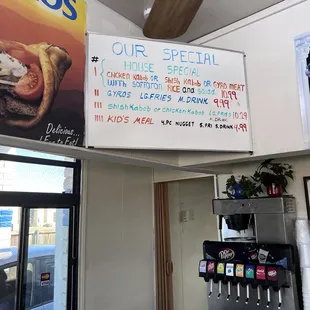 OS
Delicious...
OUR SPECIAL
HOUSE SPECIAL
I CHICKEN KABOB OR SHISH KABOB OR GYRO MEAT
WITH SAFFRAN RICE AND SALAD 10.99
II GYROS LG.FRIES M.DRINK 9.99
III SHISH KABOB LG.FRIES M.DRINK 10.29
IIII KID'S MEAL 4 PC. NUGGET S.FRI S.DRINK 4.99
Dr Pepper